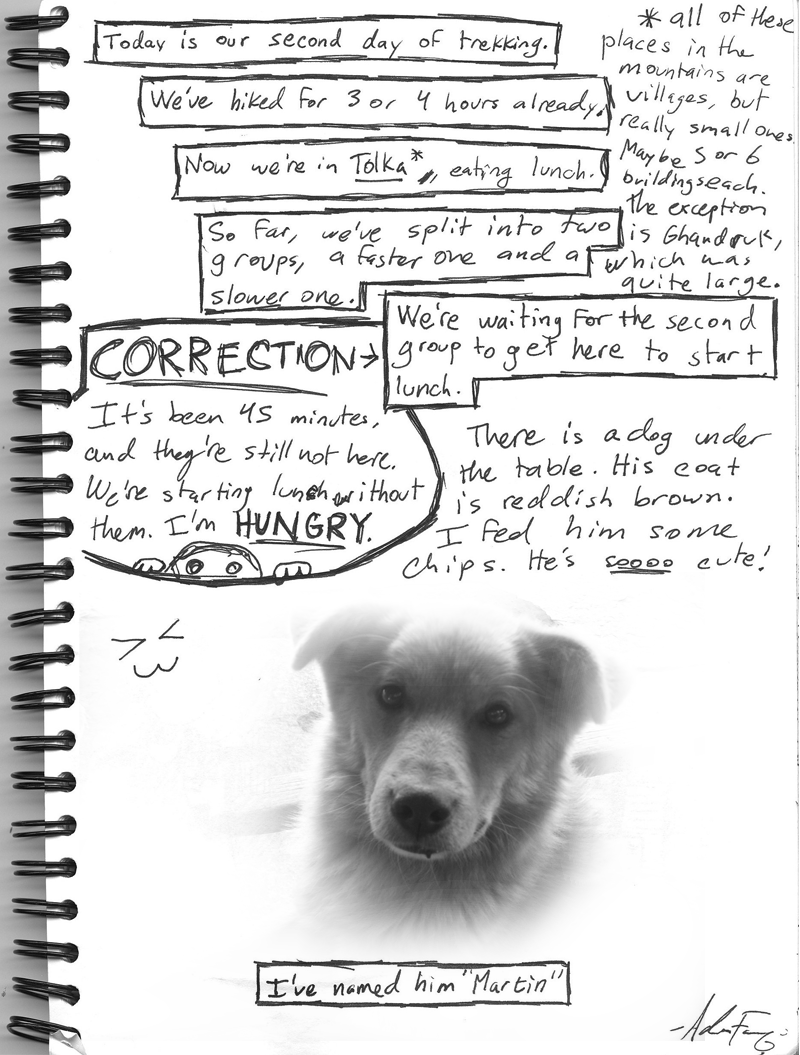 Today is our second day of trekking.
We've hiked for 3 or 4 hours already.
Now we're in Tolka*, eating lunch.
So far, we've split into two
groups, a faster one and a
slower one.
* all of these
places in the
mountains are
villages, but
really small ones.
Maybe 5 or 6
buildings each.
The exception
is Ghandruk,
which was
quite large.
We're waiting for the second
group to get here to start
lunch.
CORRECTION→
It's been 45 minutes,
and they're still not here.
We're starting lunch without
them. I'm HUNGRY.
There is a dog under
the table. His coat
is reddish brown.
I fed him some
chips. He's soooo cute!
I've named him "Martin"